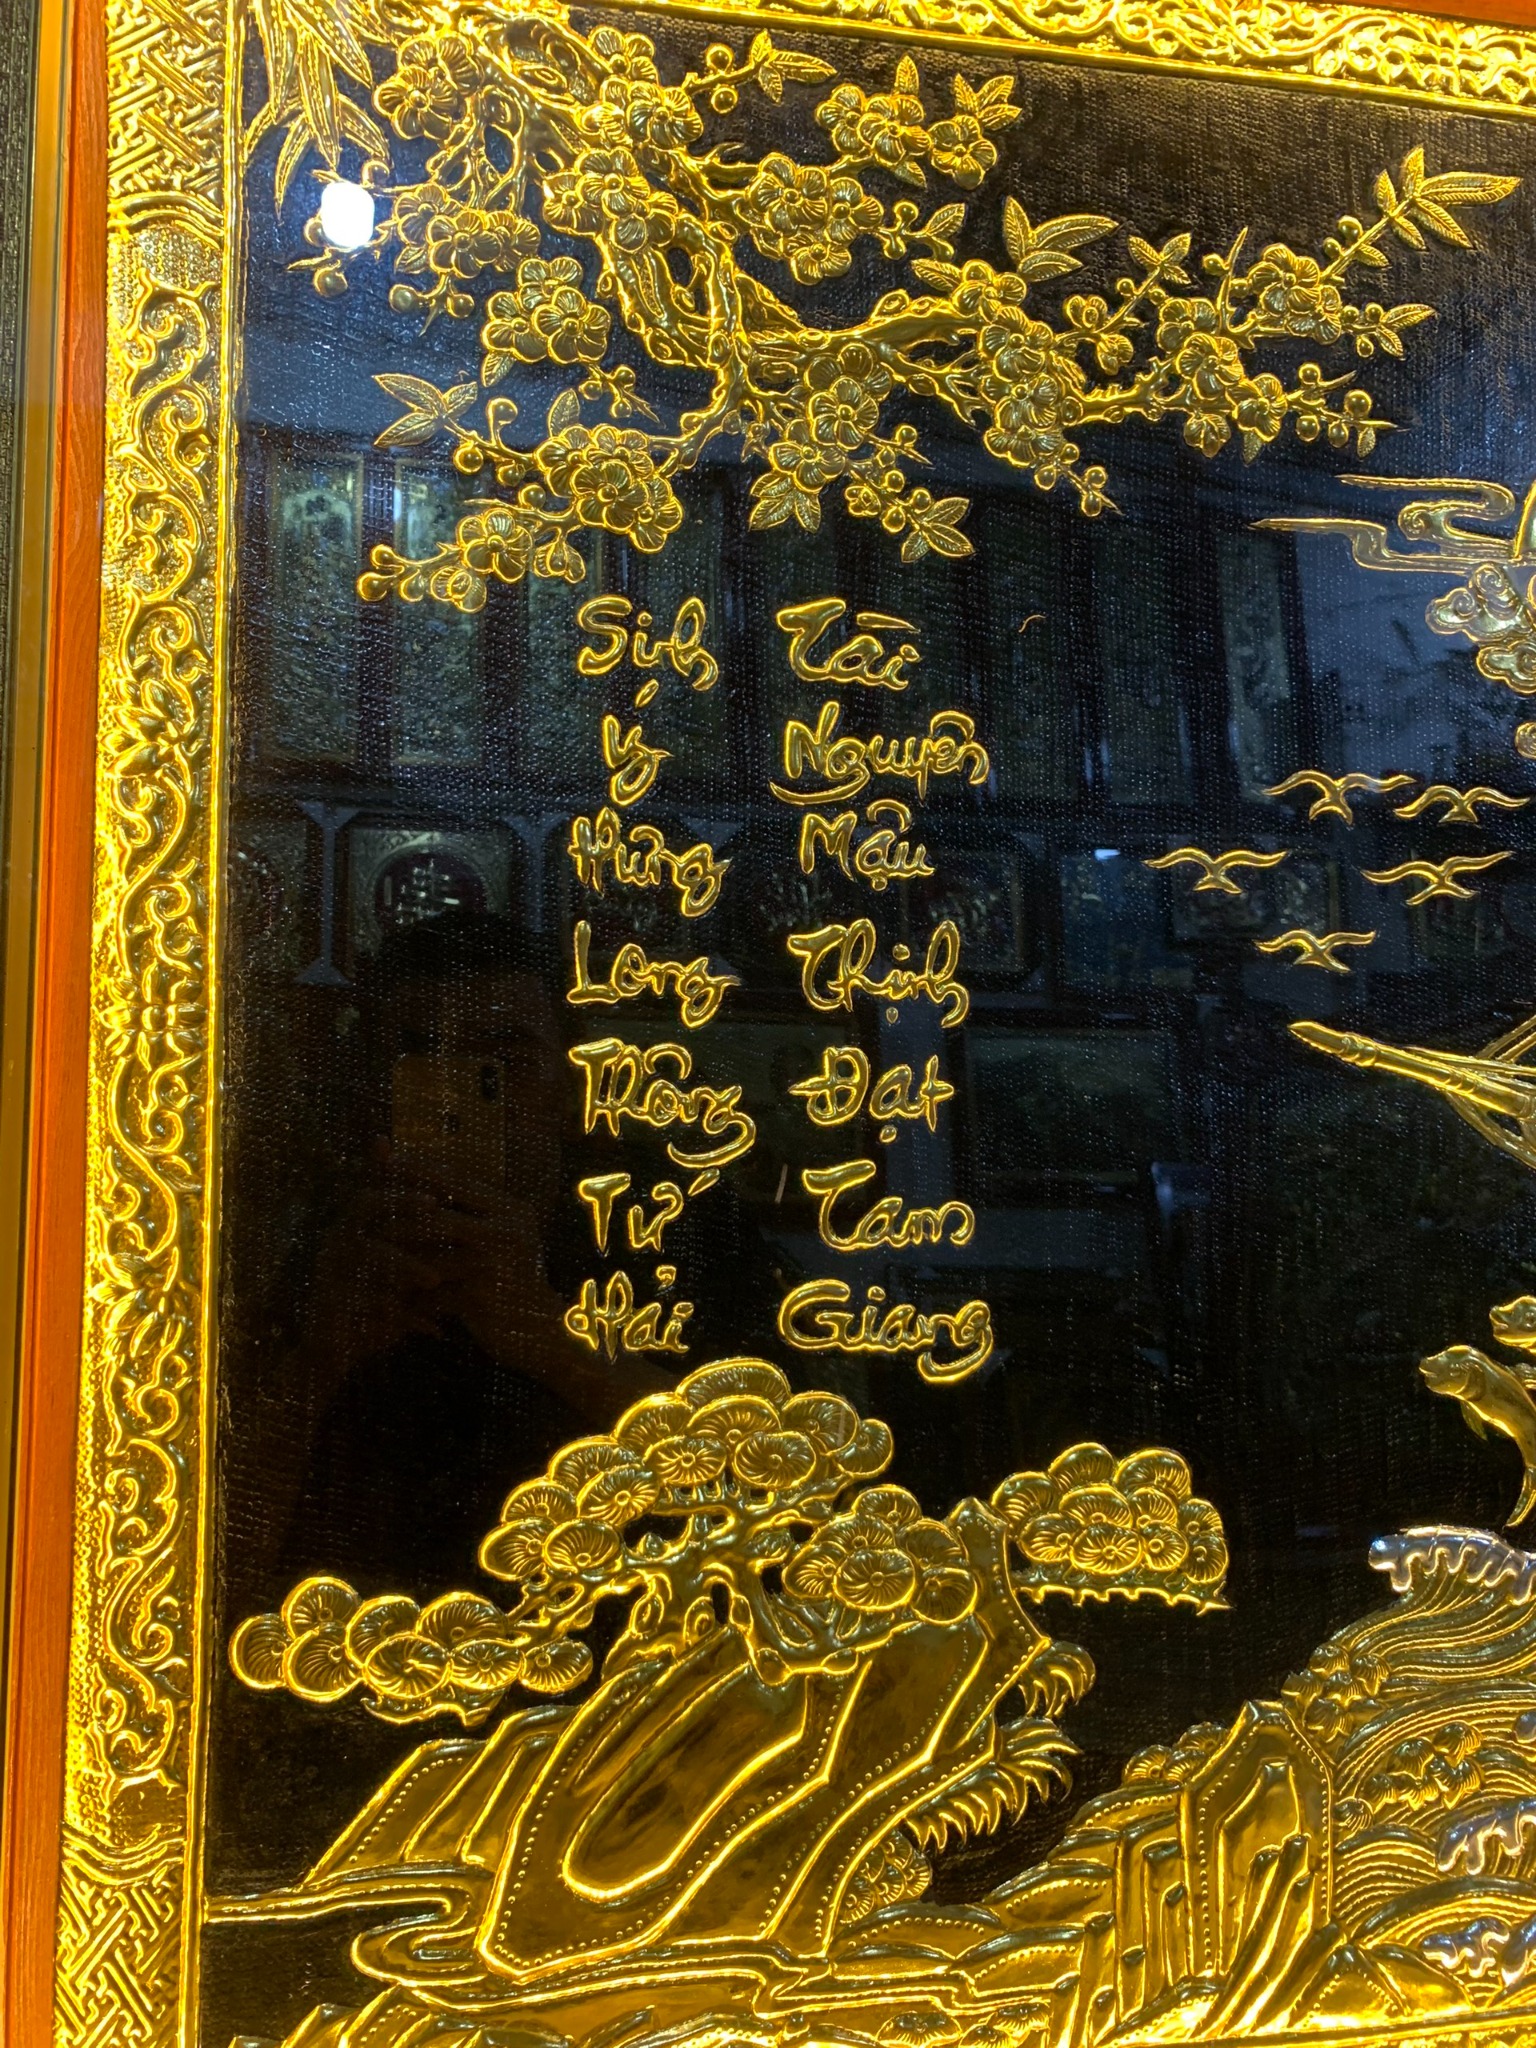 Sinh Ý Hưng Long Thông Tứ Hải
Tài Nguyên Mậu Thịnh Đạt Tam Giang